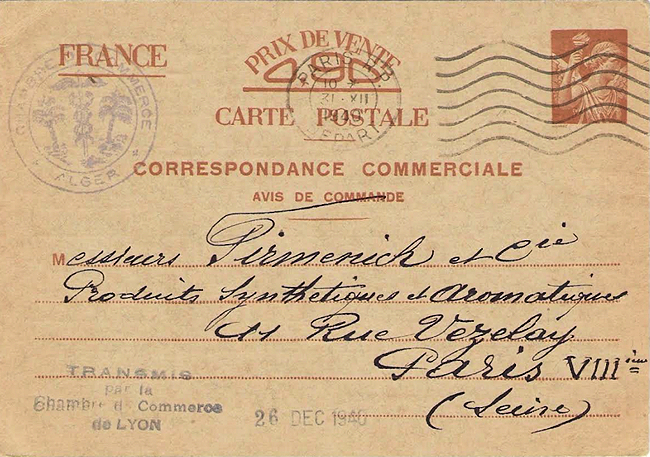 FRANCE
PRIX DE VENTE
0.90
CARTE POSTALE
CHAMBRE DE COMMERCE
ALGER
PARIS R.P.
10
31 - XII
1940
DEPART
CORRESPONDANCE COMMERCIALE
AVIS DE COMMANDE
Messieurs Firmenich et Cie
Produits Synthetiques et Aromatiques
11 Rue Vezelay
Paris VIIIième
(Seine)
TRANSMIS
par la
Chambre de Commerce
de LYON
26 DEC 1940